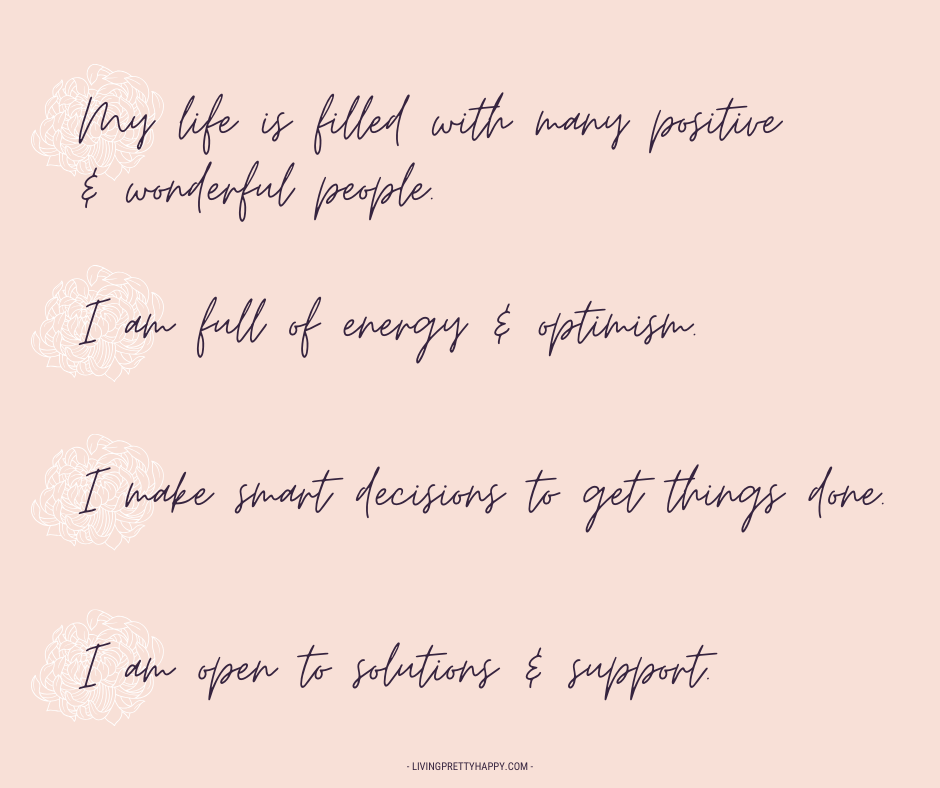 My life is filled with many positive
& wonderful people.
I am full of energy & optimism.
I make smart decisions to get things done.
I am open to solutions & support.
- LIVINGPRETTYHAPPY.COM -